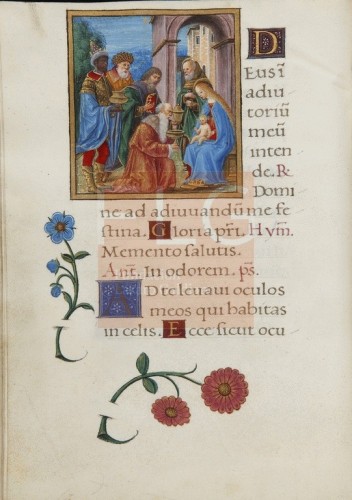 D
Eus ī
adiu
toriū
meū
inten
de. R.
Domi
ne ad adiuuandū me fe
stina. Gloria pr̄i. Hym̄.
Memento salutis.
Ant̄. In odorem. ps̄.
AD te leuaui oculos
meos qui habitas
in celis. Ecce sicut ocu